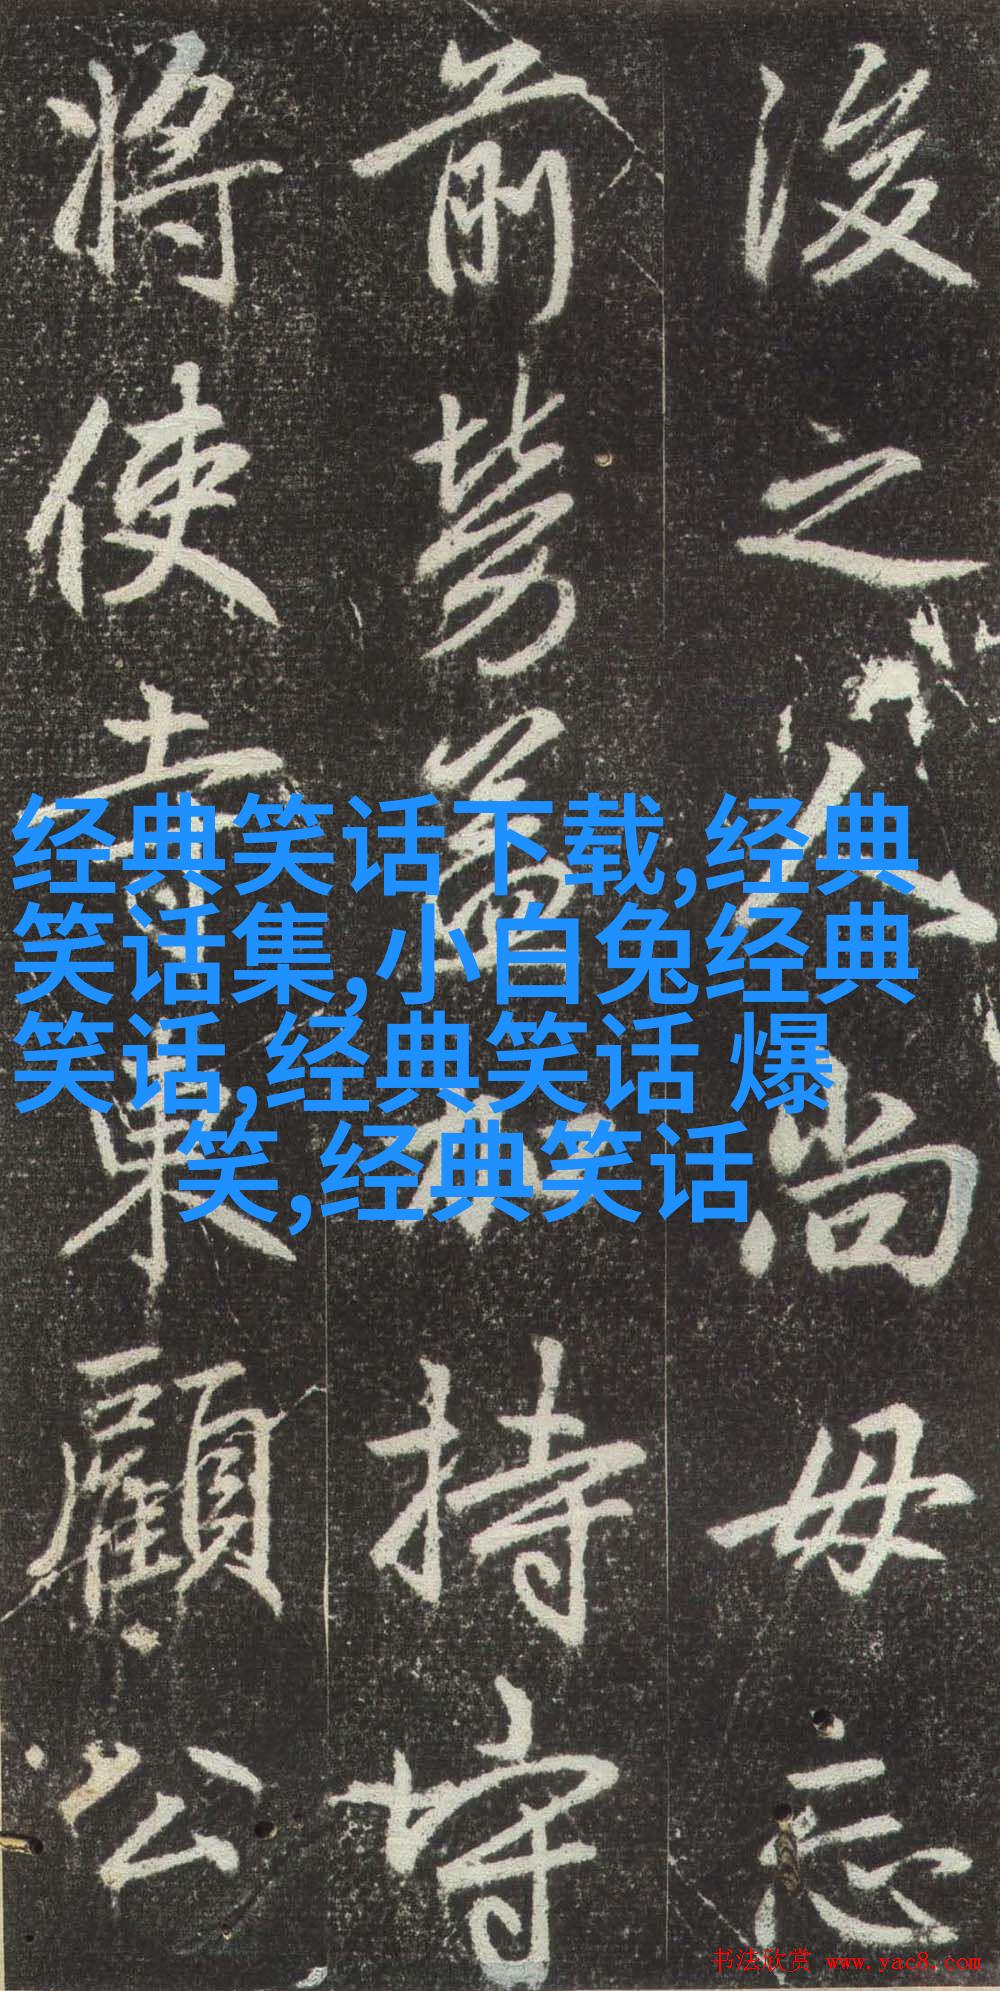 经典笑话下载,经典
笑话集,小白兔经典
笑话,经典笑话 爆
笑,经典笑话
後之人尚毋忘
前勞益持守
将使東顧公
书法欣赏 www.yac8.com